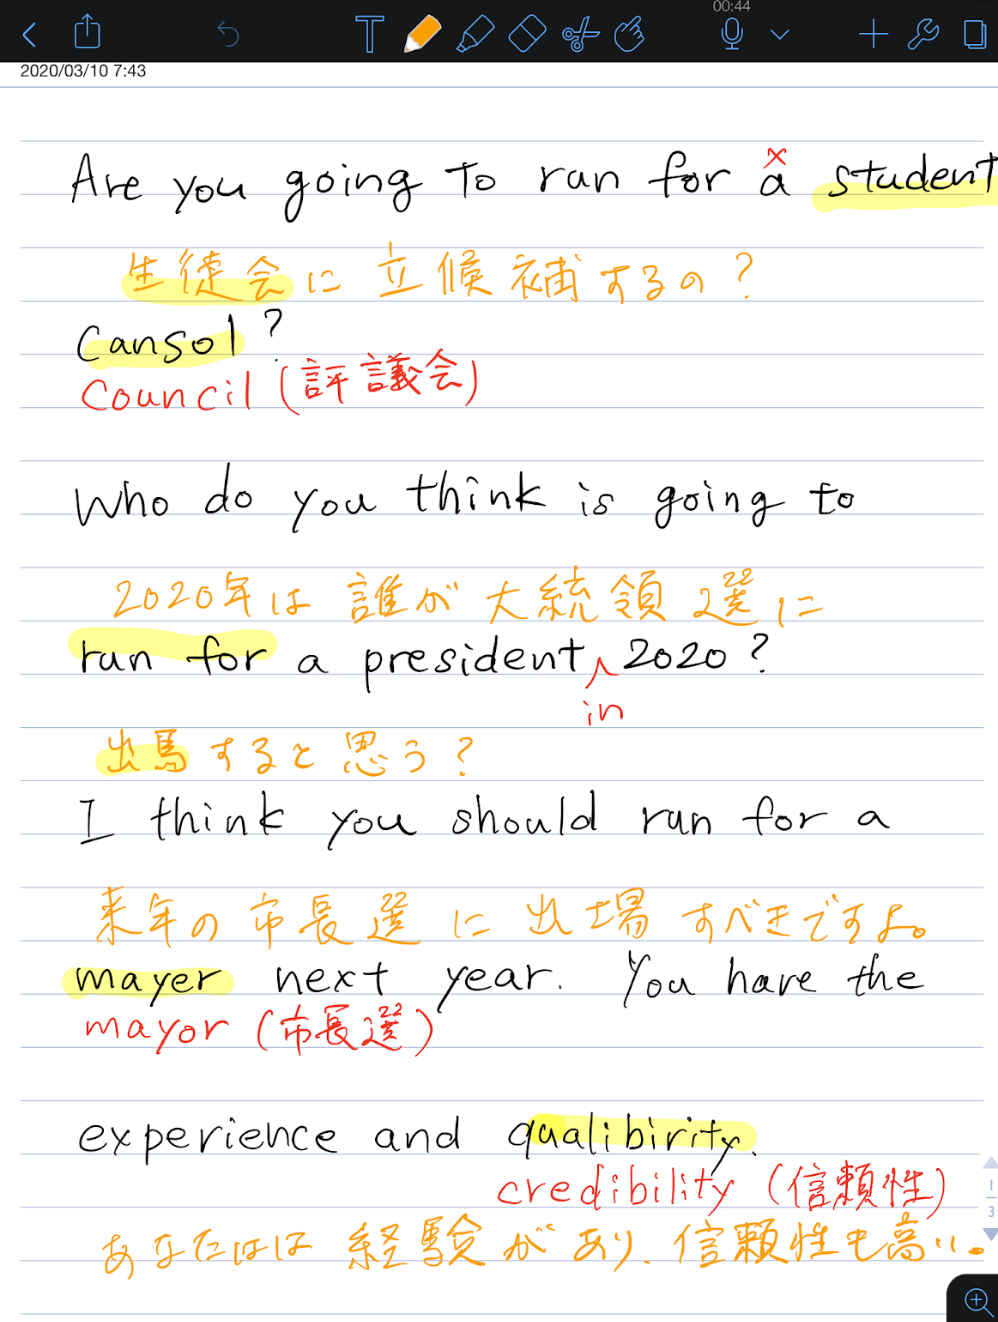 00:44
2020/03/10 7:43
×
Are you going to run for a student
生徒会に立候補するの？
cansol?
council (評議会)
Who do you think is going to
2020年は誰が大統領選に
run for a president 2020?
in
出馬すると思う？
I think you should run for a
来年の市長選に出場すべきですよ。
mayer next year. You have the
mayor (市長選)
experience and qualibirity.
credibility (信頼性)
1
3
あなたはは経験があり、信頼性も高い。